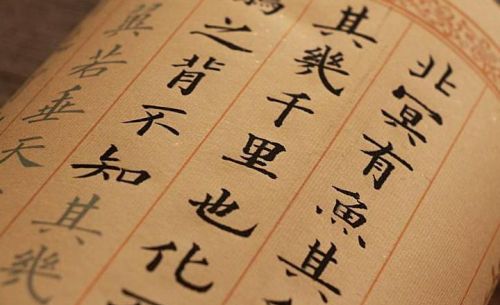 北冥有魚其
其幾千里也化
之背不知其幾
翼若垂天